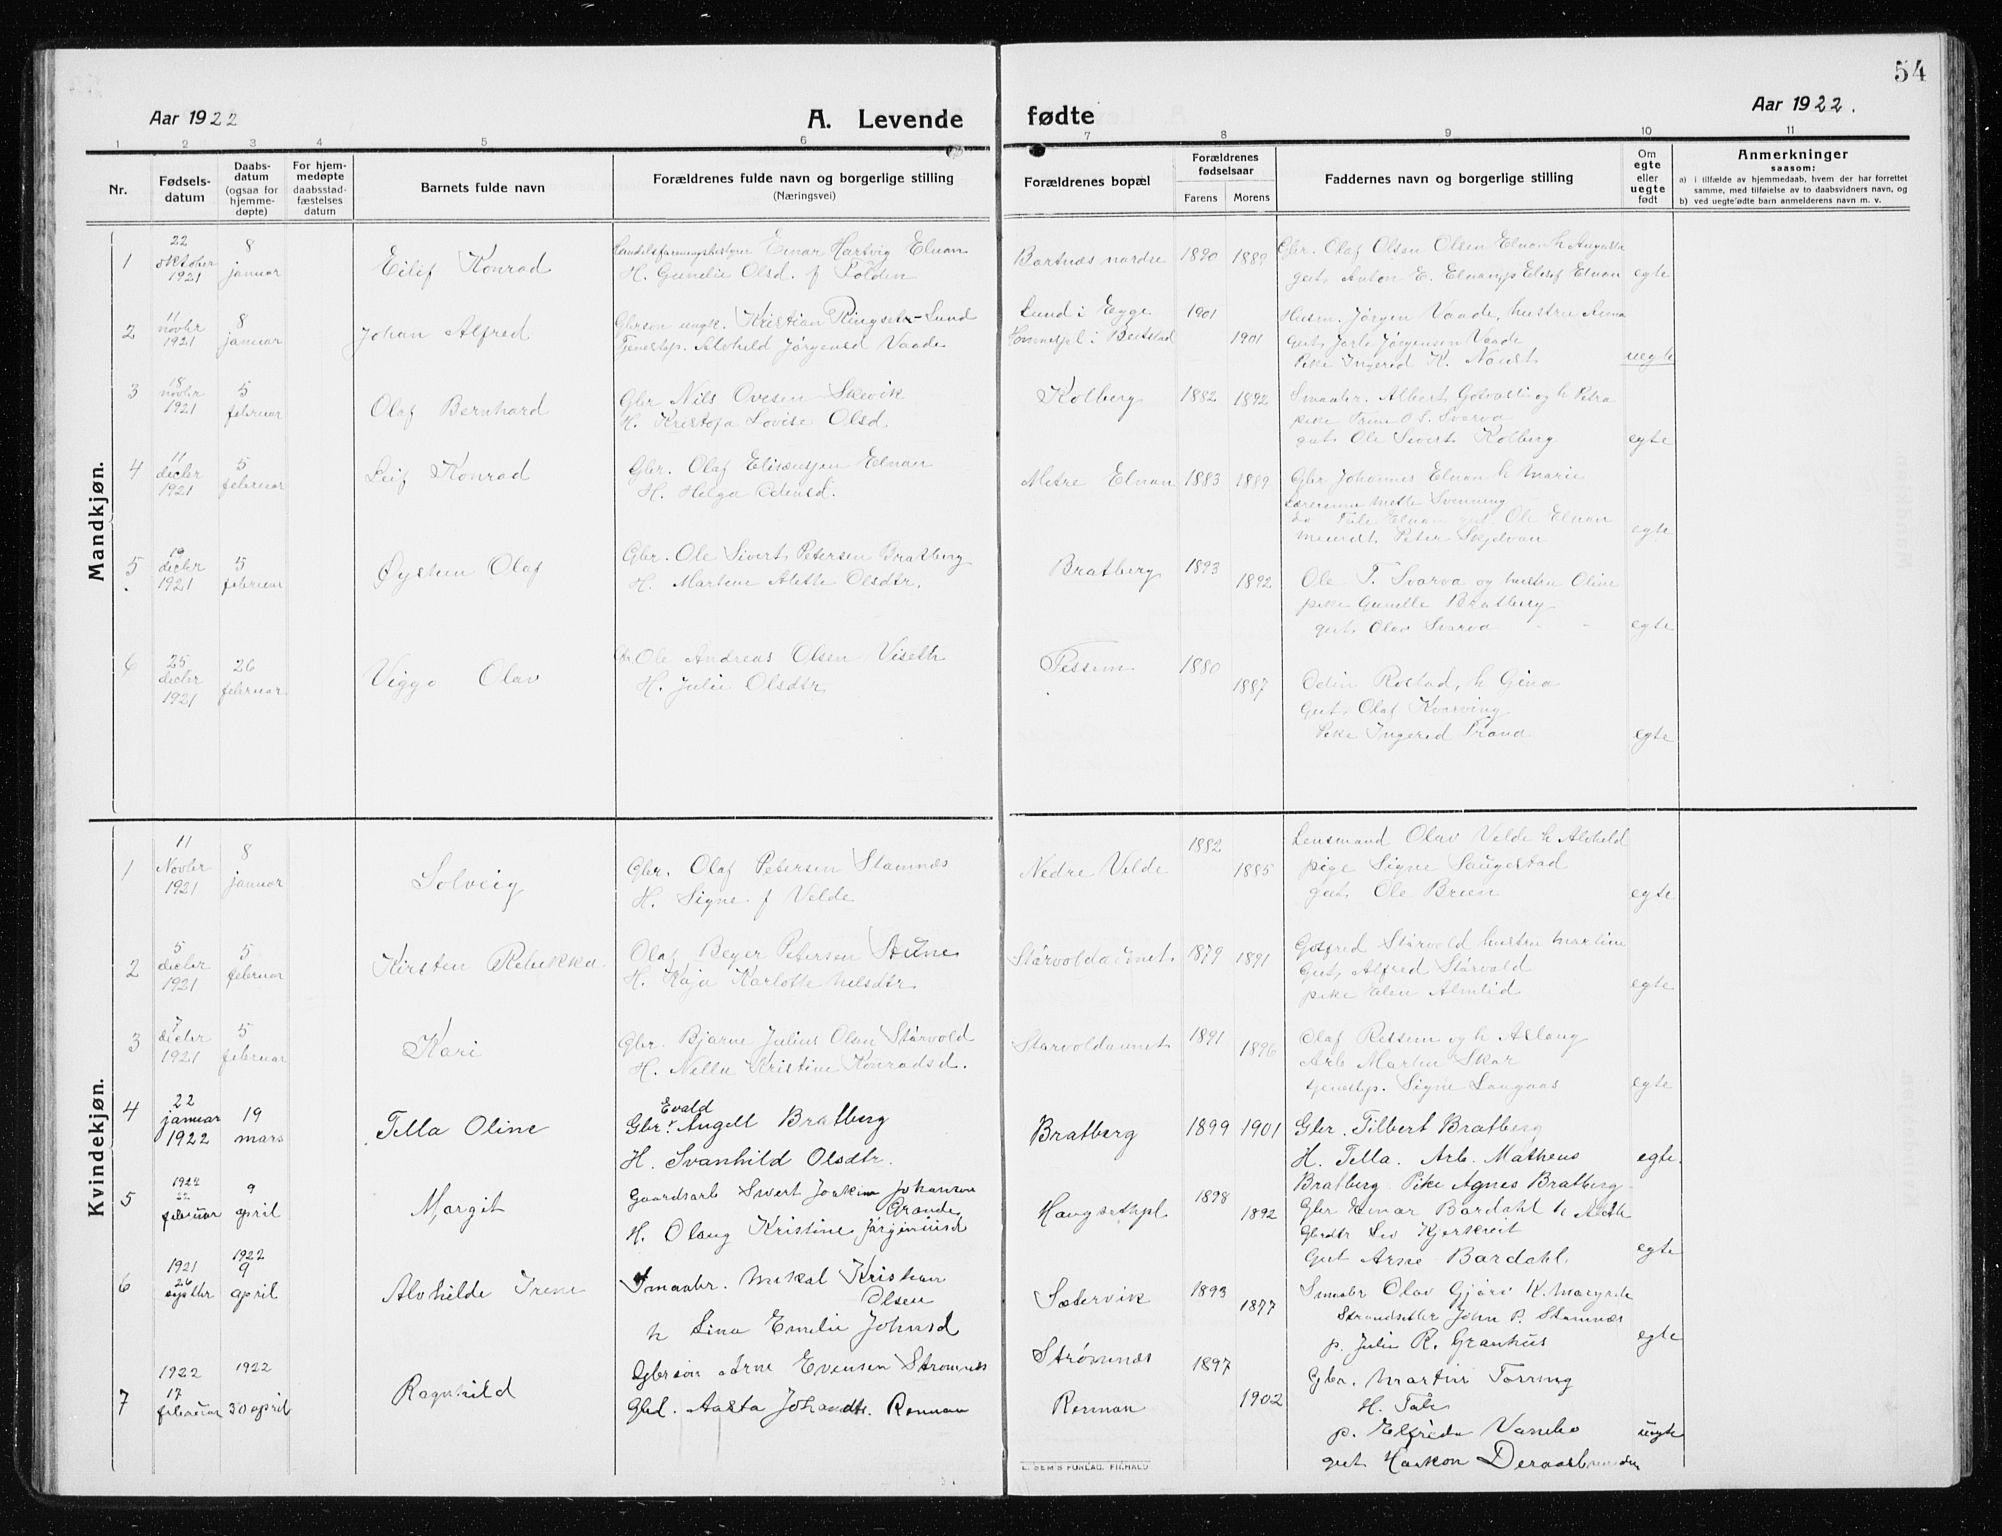 54
Aar 1922
A. Levende
fødte
Aar 1922.
1 2 3 4 5 6 7 8 9 10 11
Nr.
Fødsels-
datum
Daabs-
datum
(ogsaa for
hjemme-
døpte)
For hjem-
medøpte
daabsstad-
fæstelses
datum
Barnets fulde navn
Forældrenes fulde navn og borgerlige stilling
(Næringsvei)
Forældrenes bopæl
Forældrenes
fødselsaar
Farens Morens
Faddernes navn og borgerlige stilling
Om
egte
eller
uegte
født
Anmerkninger
saasom:
a) i tilfælde av hjemmedaab, hvem der har forrettet
samme, med tilføielse av to daabsvidners navn, og
b) ved uegte fødte barn anmelderens navn m. v.
Mandkjøn.
1
22
oktober
1921
8
januar
Eilif Konrad
Einar Hartvig Elnan
H. Gunelie Olsd. f Solden
Bartnes nordre
1890 1889
Gbr. Olaf Olsen Elnan h Augusta
gut. Anton E. Elnan p Elisef Elnan
egte
2
11
novbr
1921
8
januar
Johan Alfred
Gbrsøn ungk. Kristian Ringseth-Lund
Tjenestep. Alvhild Jørgensd Vaade
Lund i Egge
i Beitstad
1901
1901
Husm. Jørgen Vaade, hustru Anna
Gut. Jarle Jørgensen Vaade
Pike Ingerid K. Naust
uegte
3
18
novbr
1921
5
februar
Olaf Bernhard
Gbr Nils Ovesen Skevik
H. Kristofa Lovise Olsd.
Kolberg
1882 1892
Smaabr. Albert Golvasli og h Petra
pike Trine O S. Svarva
gut. Ole Sivert Kolberg
egte
4
11
decbr
1921
5
februar
Leif Konrad
Gbr. Olaf Elisæussen Elnan
H. Helga Odinsd.
Metre Elnan
1883 1889
Gbr Johannes Elnan h Marie
Lærerinne Mette Svenning
Tale Elnan gut. Ole Elnan
Peter Skjelvan
egte
5
19
decbr
1921
5
februar
Øystein Olaf
Gbr. Ole Sivert Petersen Bratberg
H. Martine Alette Olsdtr.
Bratberg
1893
1892
Ole T. Svarva og hustru Oline
pike Gunelle Bratberg
gut. Olav Svarva
egte
6
25
decbr
1921
26
februar
Viggo Olav
Ole Andreas Olsen Viseth
H. Julie Olsdtr
Tessem
1880
1887
Odin Rostad, h Gina
Gut. Olaf Kvarving
Pike Ingerid Trana
egte
Kvindekjøn.
1
11
Novbr
1921
8
januar
Solveig
Gbr. Olaf Petersen Stamnes
H. Signe f Velde
Nedre Velde
1882
1885
Lensmand Olav Velde h Alvhild
pige Signe Saugestad
gut. Ole Breen
egte
2
5
decbr
1921
5
februar
Kirsten Rebekka
Olaf Beyer Petersen Stene
H. Kaja Karlotte Nilsdtr
Størvoldaunet
1879 1891
Gotfred Størvold hustru Martine
Gut. Alfred Størvold
pike Elen Almlid
egte
3
7
decbr
1921
5
februar
Kari
Gbr. Bjarne Julius Olsen Størvold
H. Nelly Kristine Konradsd.
Størvoldaunet
1891
1896
Olaf Retsem og h Aslaug
Arb Martin Skar
tjenestp. Signe Langaas
egte
4
22
januar
1922
19
mars
Tella Oline
Evald
Gbr. Angell Bratberg
H. Svanhild Olsdtr.
Bratberg
1899 1901
Gbr. Tilbert Bratberg
H. Tella. Arb. Matheus
Bratberg Pike Agnes Bratberg
egte.
5
1922
22
februar
9
april
Margit
Gaardsarb Sivert Joakim Johansen
Grande
H. Olaug Kristine Jørginiusd
Haugsethpl
1898
1892
Gbr Einar Bardahl h
Gbrdtr Liv Kjerkreit
Gut Arne Bardahl.
egte
6
1921
26
septbr
1922
9
april
Alvhilde Irene
Smaabr. Mikal Kristian
Olsen
h Lina Emelie Johnsd
Sætervik
1893
1877
Smabr Olav Gjørv K. Margrete
Strandsitter John P. Stamnes
p. Julie R. Grankus
egte
7
1922
17
februar
1922
30 april
Ragnhild
Gbrsøn Arne Evensen Strømnes
Gbd. Aasta Johansdtr. Reman
Strømnes
Reman
1897
1902
Gbr. Martin Torring
H. Tale
p. Elfrida Vanebo
gut Haakon
uegte
E. SEM'S FORLAG, FR.HALD